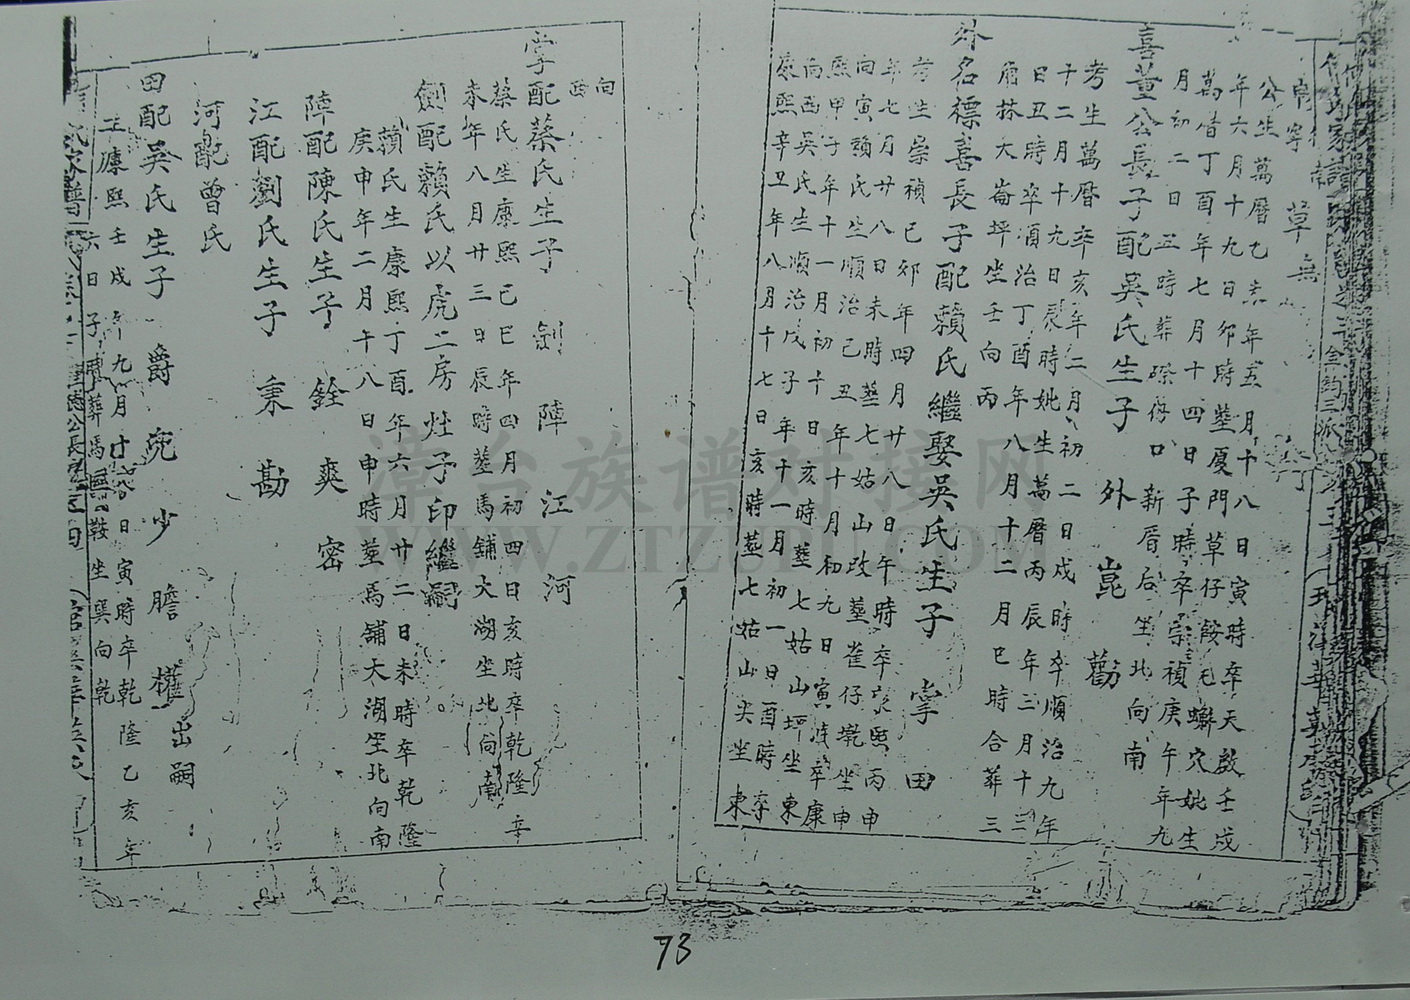 公生萬曆乙亥年五月十八日寅時卒天啟壬戌
年六月十九日卯時塟廈門草仔鞍毛蠏穴妣生
萬曆丁酉年七月十四日子時卒宗禎庚午年九
月初二日丑時葬磔仔口新厝后坐北向南
喜董公長子配吳氏生子 外 崑 勸
考生萬曆辛亥年二月初二日戌時卒順治九年
十二月十九日辰時妣生萬曆丙辰年三月十三
日丑時卒順治丁酉年八月十二月巳時合葬三
大崙坪坐壬向丙
外名標喜長子配賴氏繼娶吳氏生子 掌 田
考生崇禎己卯年四月廿八日午時卒康熙丙申
年七月廿八日未時塟七姑山改塟崔仔墘坐申
向寅賴氏生順治己丑年十月初九日寅時卒康
熙甲子年十一月初十日亥時塟七姑山坪坐東
向西吳氏生順治戊子年十一月初一日酉時卒
康熙辛丑年八月十七日亥時塟七姑山尖坐東
向西
掌配蔡氏生子 釗 陣 江 河
蔡氏生康熙己巳年四月初四日亥時卒乾隆辛
未年八月廿三日辰時塟馬舖大湖坐北向南
側配賴氏以虎二房灶子印繼嗣
賴氏生康熙丁酉年六月廿二日未時卒乾隆
庚申年二月十八日申時塟馬舖大湖坐北向南
陣配陳氏生子 銓 爽 密
江配劉氏生子 秉 勘
河配曾氏
田配吳氏生子 爵 兗 少 膽 權出嗣
康熙壬戌年九月廿八日寅時卒乾隆乙亥年
六日子時葬馬鞍坐巽向乾
漳台族谱对接网
WWW.ZTZUPU.COM
73